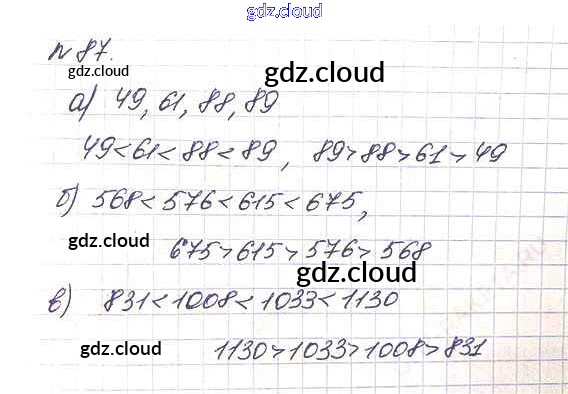 gdz.cloud
gdz.cloud
№ 87.
gdz.cloud
gdz.cloud
а) 49, 61, 88, 89
49<61<88<89, 89>88>61>49
gdz.cloud
б) 568<576<615<675,
675>615>576>568
gdz.cloud
gdz.cloud
в) 831<1008<1033<1130
1130>1033>1008>831
gdz.cloud
gdz.cloud